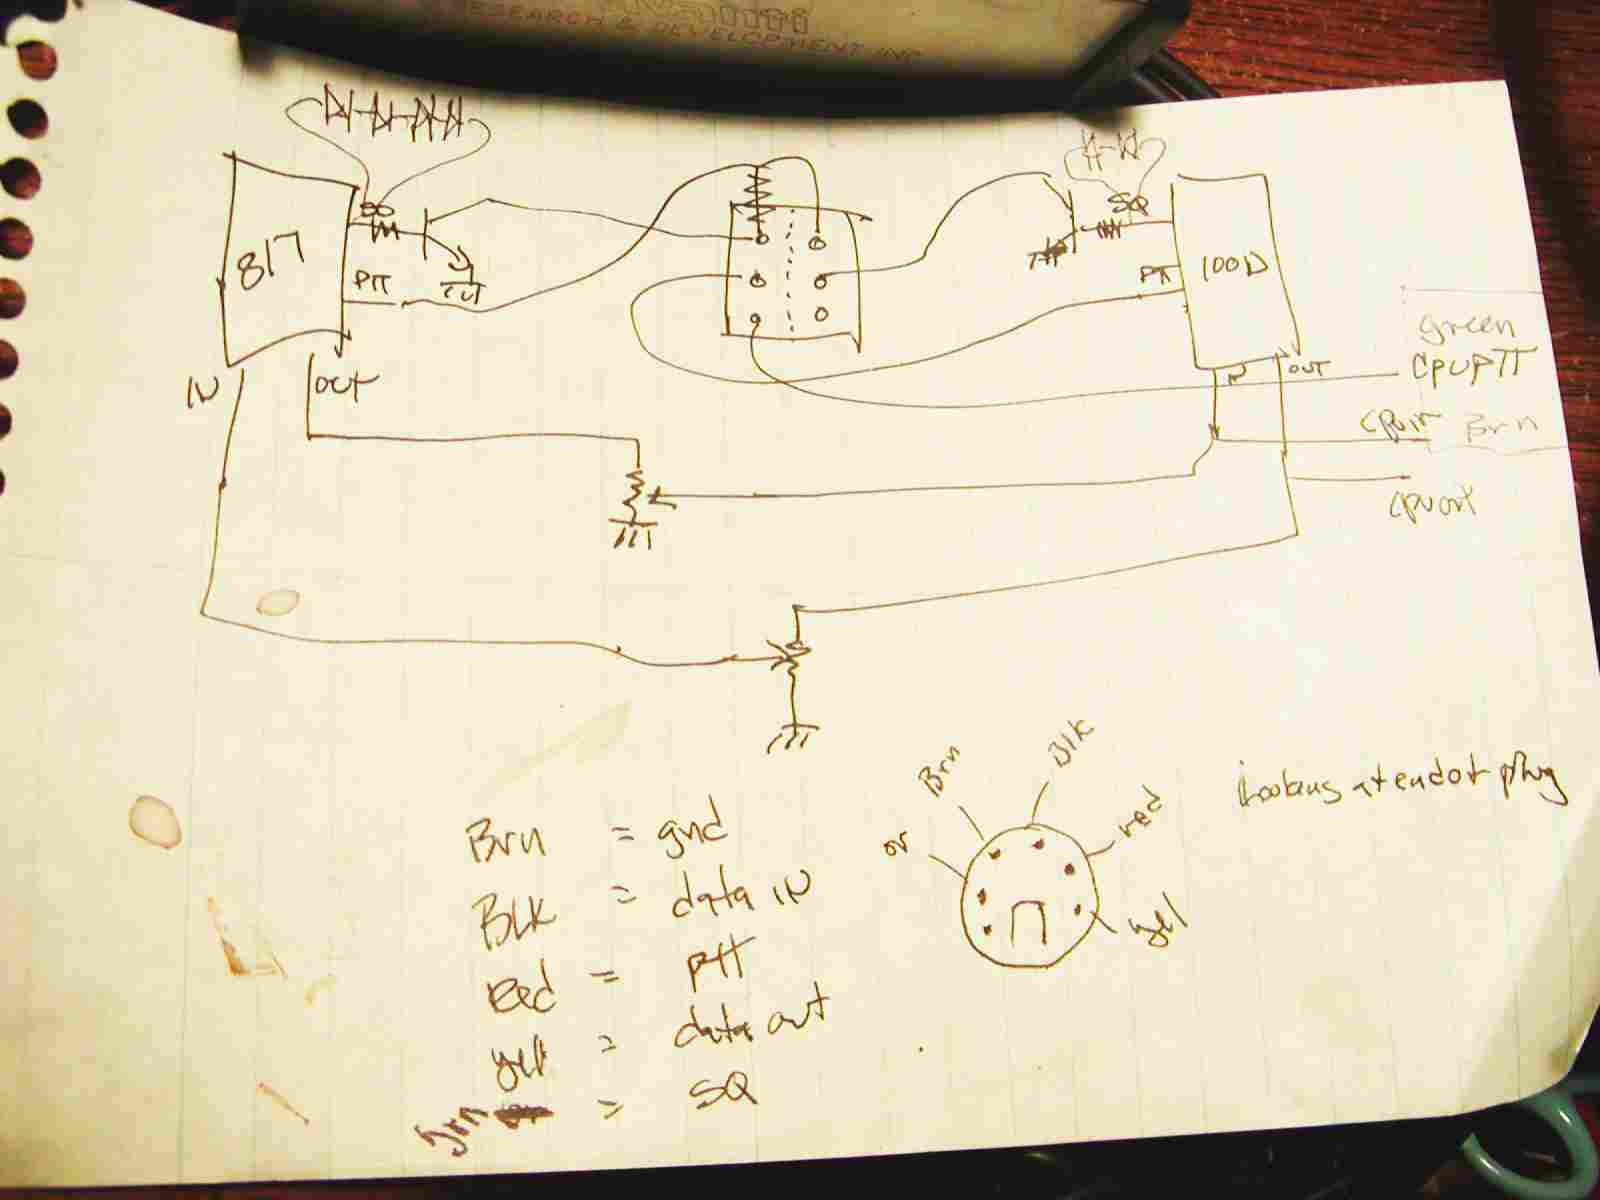 RESEARCH & DEVELOPMENT INC
SQ
SQ
817
PTT
PTT
100D
green
CPUPTT
IN
OUT
IN
OUT
CPUIN Brn
CPUOUT
Brn
BLK
or
red
yel
looking at end of plug
Brn = gnd
BLK = data IN
red = ptt
yel = data out
grn = SQ